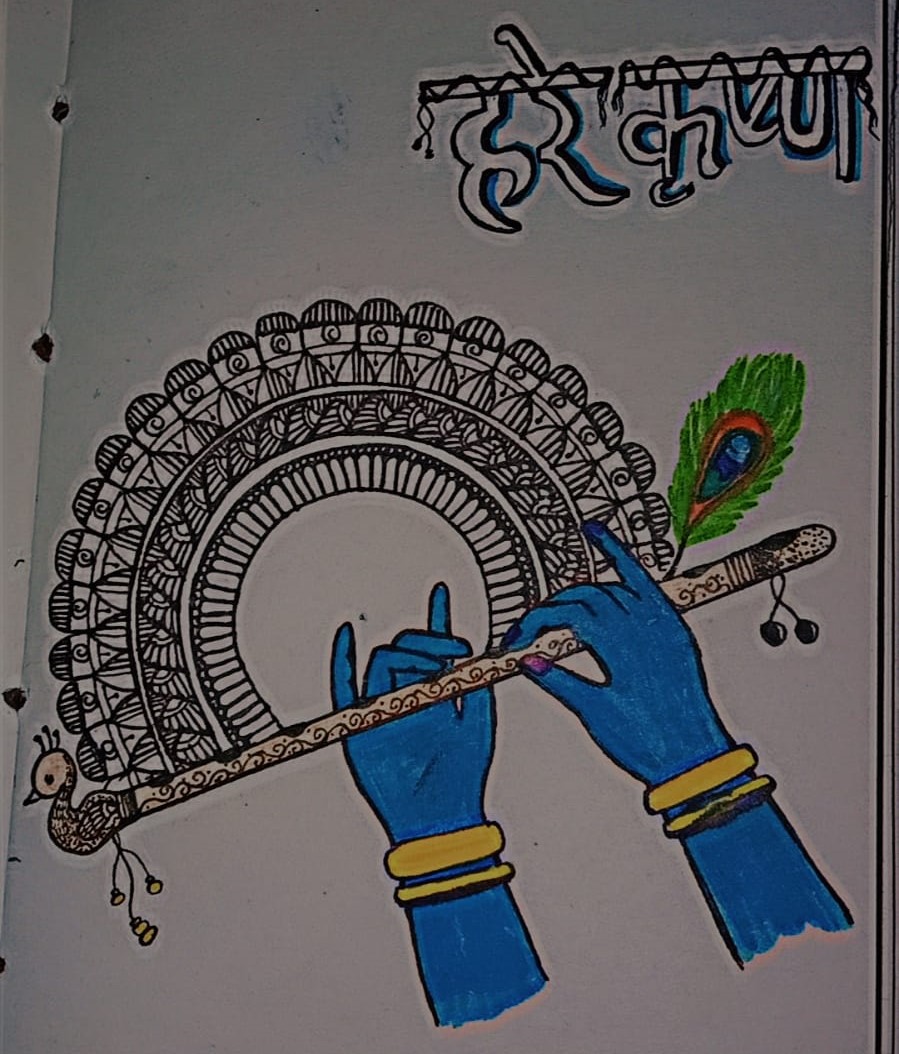 हरे कृष्ण